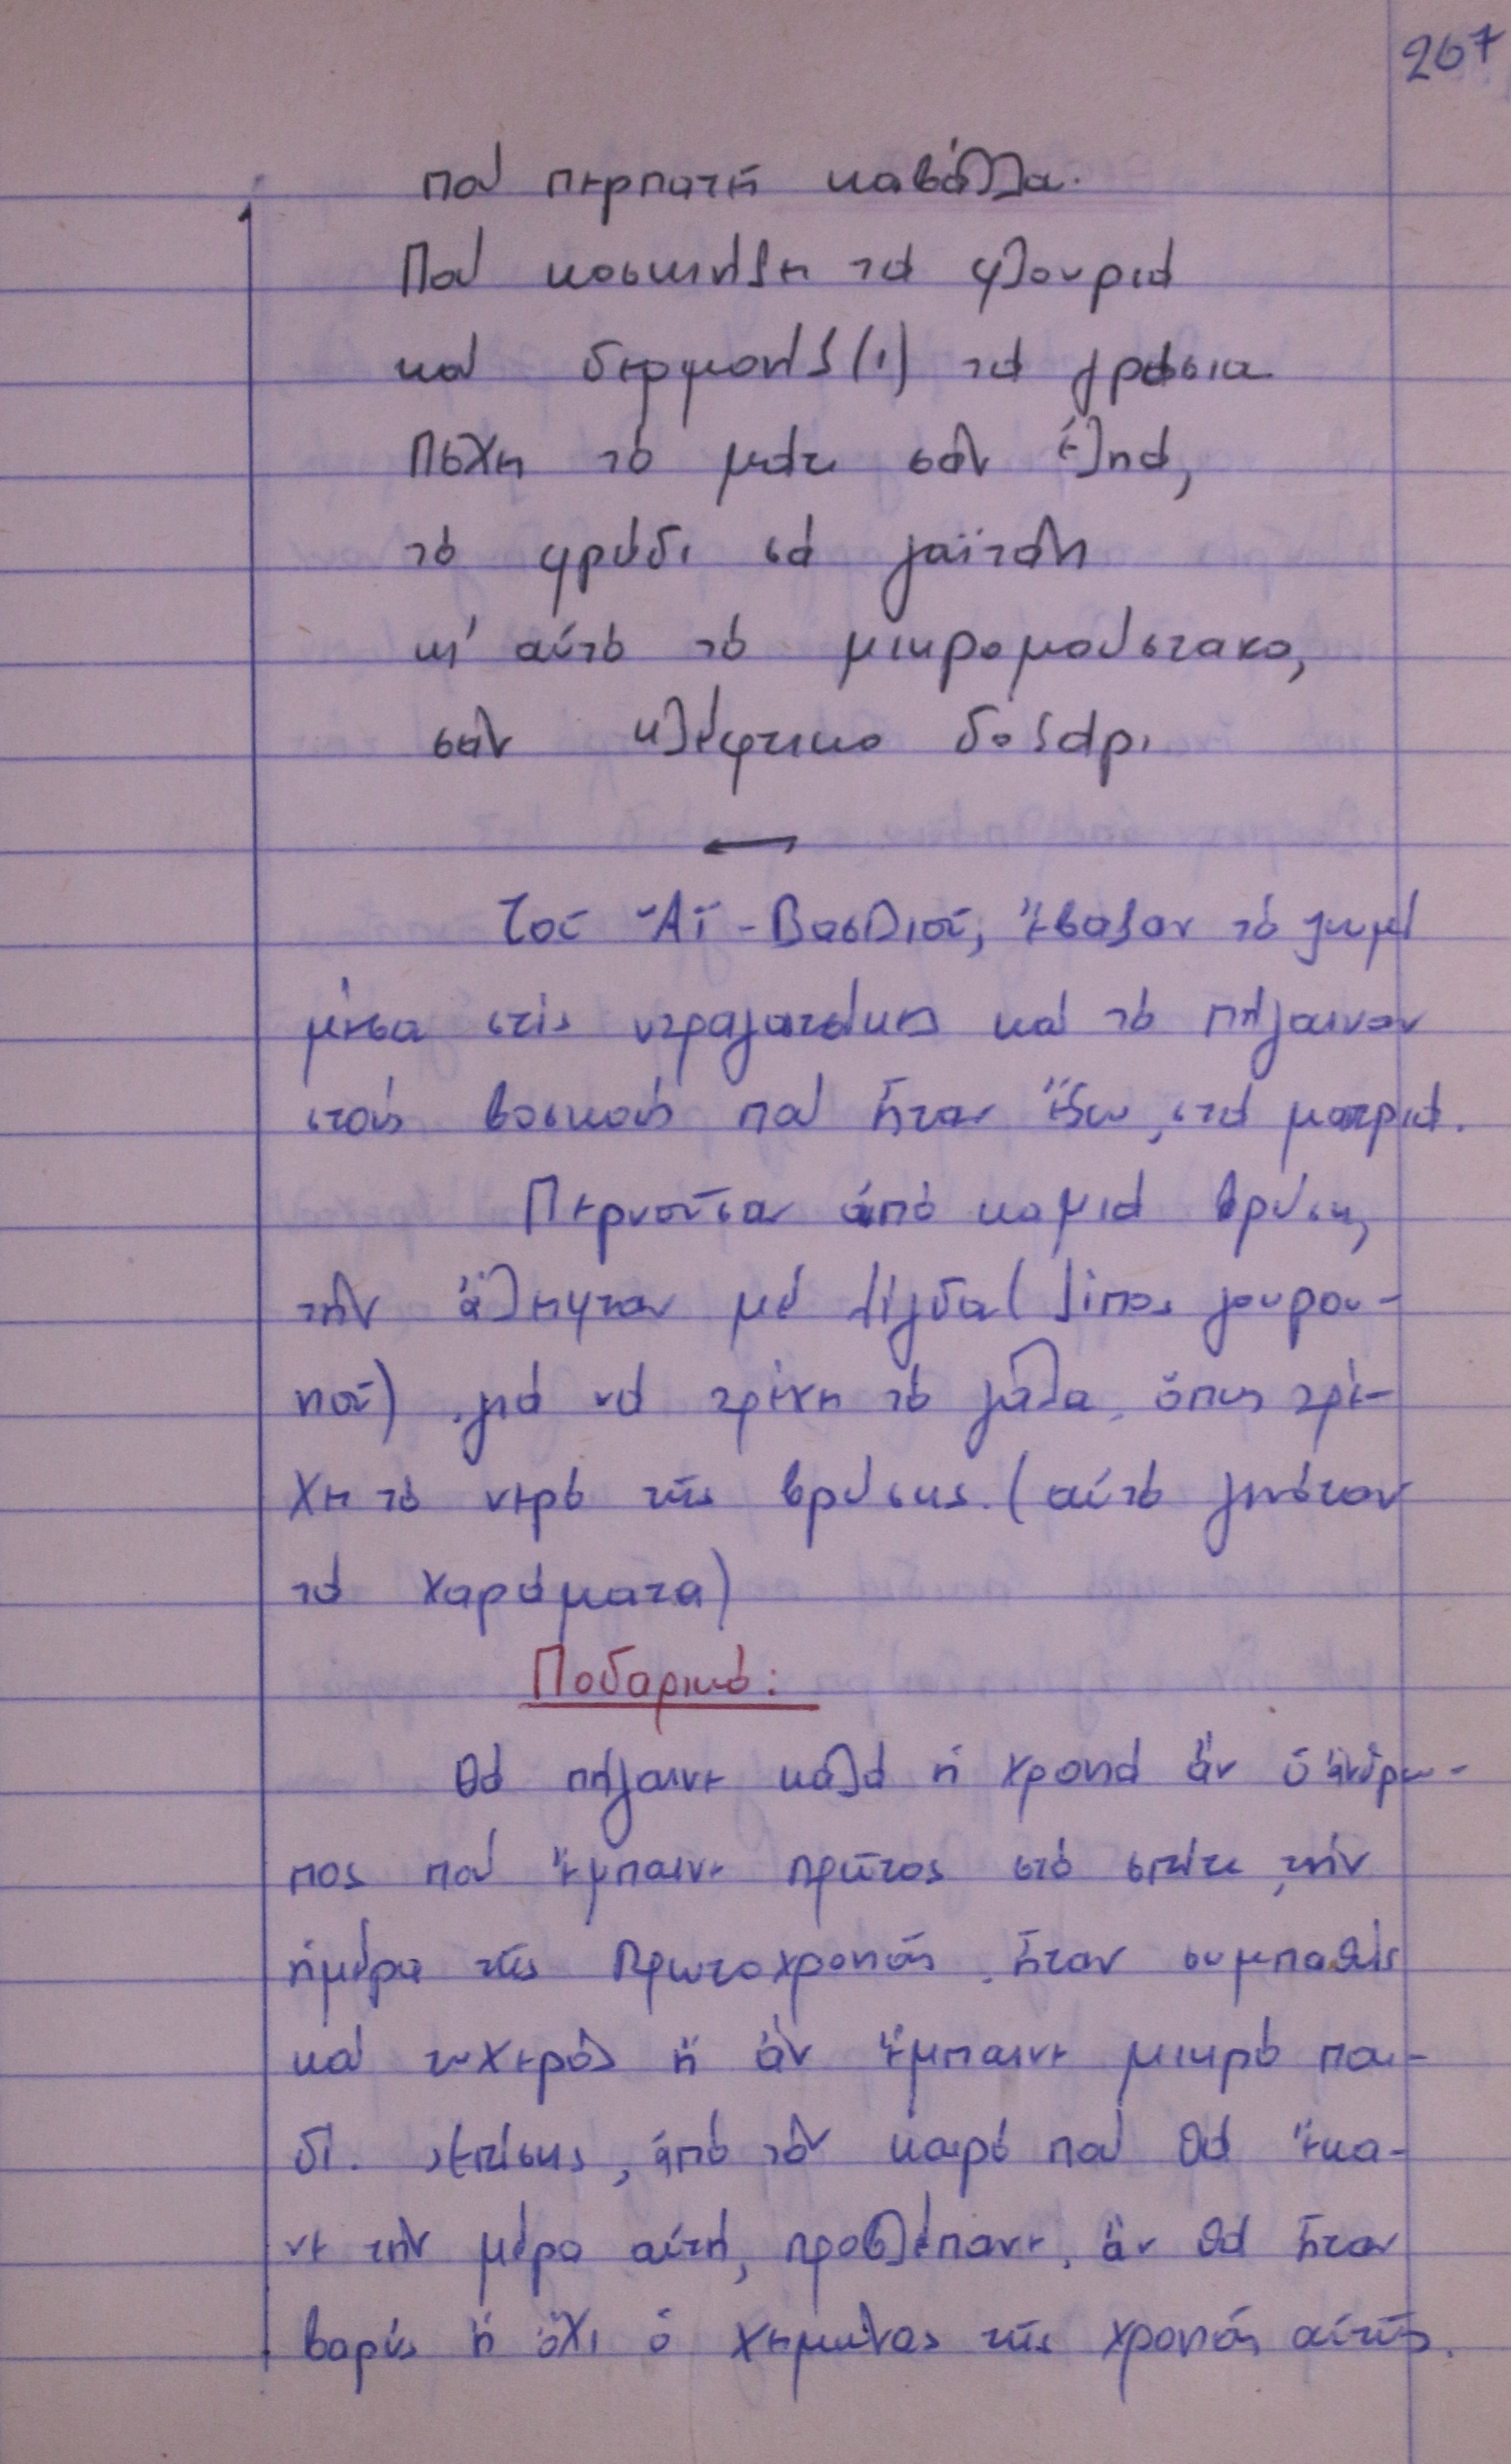 267
ποὺ περπατεῖ καβάλλα.
Ποὺ κοσκινίζει τὰ φλουριὰ
καὶ δερμονίζ(ι) τὰ γρόσια
Πόχει τὸ μάτι σὰν ἐληά,
τὸ φρύδι σὰ γαϊτάνι
κι' αὐτὸ τὸ μικρομούστακο,
σὰν κλέφτικο δοξάρι
Τοῦ Ἁϊ-Βασιλιοῦ, ἔβαζαν τὸ ψωμὶ
μέσα στὶς ντραγατσίκες καὶ τὸ πήγαιναν
στοὺς βοσκοὺς ποὺ ἦταν ἔξω, στὰ μαντριά.
Περνοῦσαν ἀπὸ καμιὰ βρύση,
τὴν ἄλειφταν μὲ λίγδα (λίπος γουρου-
νιοῦ), γιὰ νὰ τρέχη τὸ γάλα, ὅπως τρέ-
χει τὸ νερὸ τῆς βρύσης. (αὐτὸ γινόταν
τὰ χαράματα)
Ποδαρικό:
Θὰ πήγαινε καλὰ ἡ χρονιὰ ἂν ὁ ἄνθρω-
πος ποὺ ἔμπαινε πρῶτος στὸ σπίτι, τὴν
ἡμέρα τῆς Πρωτοχρονιᾶς, ἦταν συμπαθὴς
καὶ τυχερὸς ἢ ἂν ἔμπαινε μικρὸ παι-
δί. Ἐπίσης, ἀπὸ τὸν καιρὸ ποὺ θὰ ἔκα-
νε τὴν μέρα αὐτή, προβλέπανε, ἂν θὰ ἦταν
βαρὺς ἢ ὄχι ὁ χειμώνας τῆς χρονιᾶς αὐτῆς.